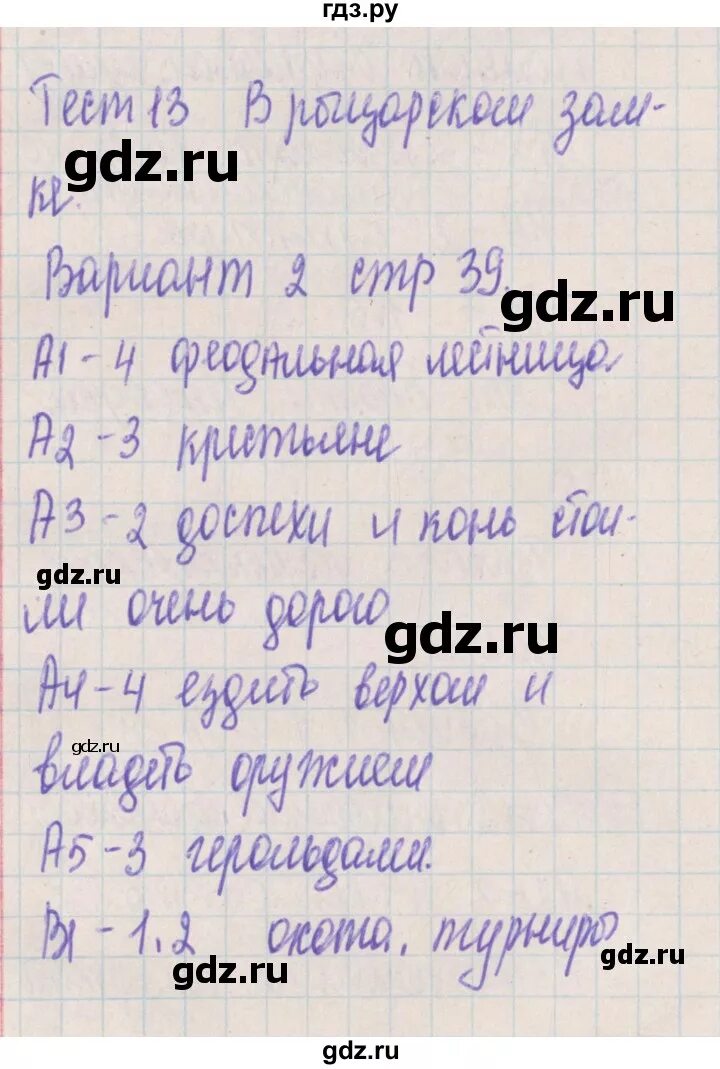 гдз.ру
Тест 13 В рыцарском зам-
gdz.ru
ке.
Вариант 2 стр 39.
gdz.ru
А1 - 4 феодальная лестница
А2 - 3 крестьяне
А3 - 2 доспехи и конь стои-
gdz.ru
ли очень дорого
gdz.ru
А4 - 4 ездить верхом и
gdz.ru
владеть оружием
А5 - 3 герольдами.
В1 - 1.2 охота, турниры
gdz.ru
gdz.ru
gdz.ru